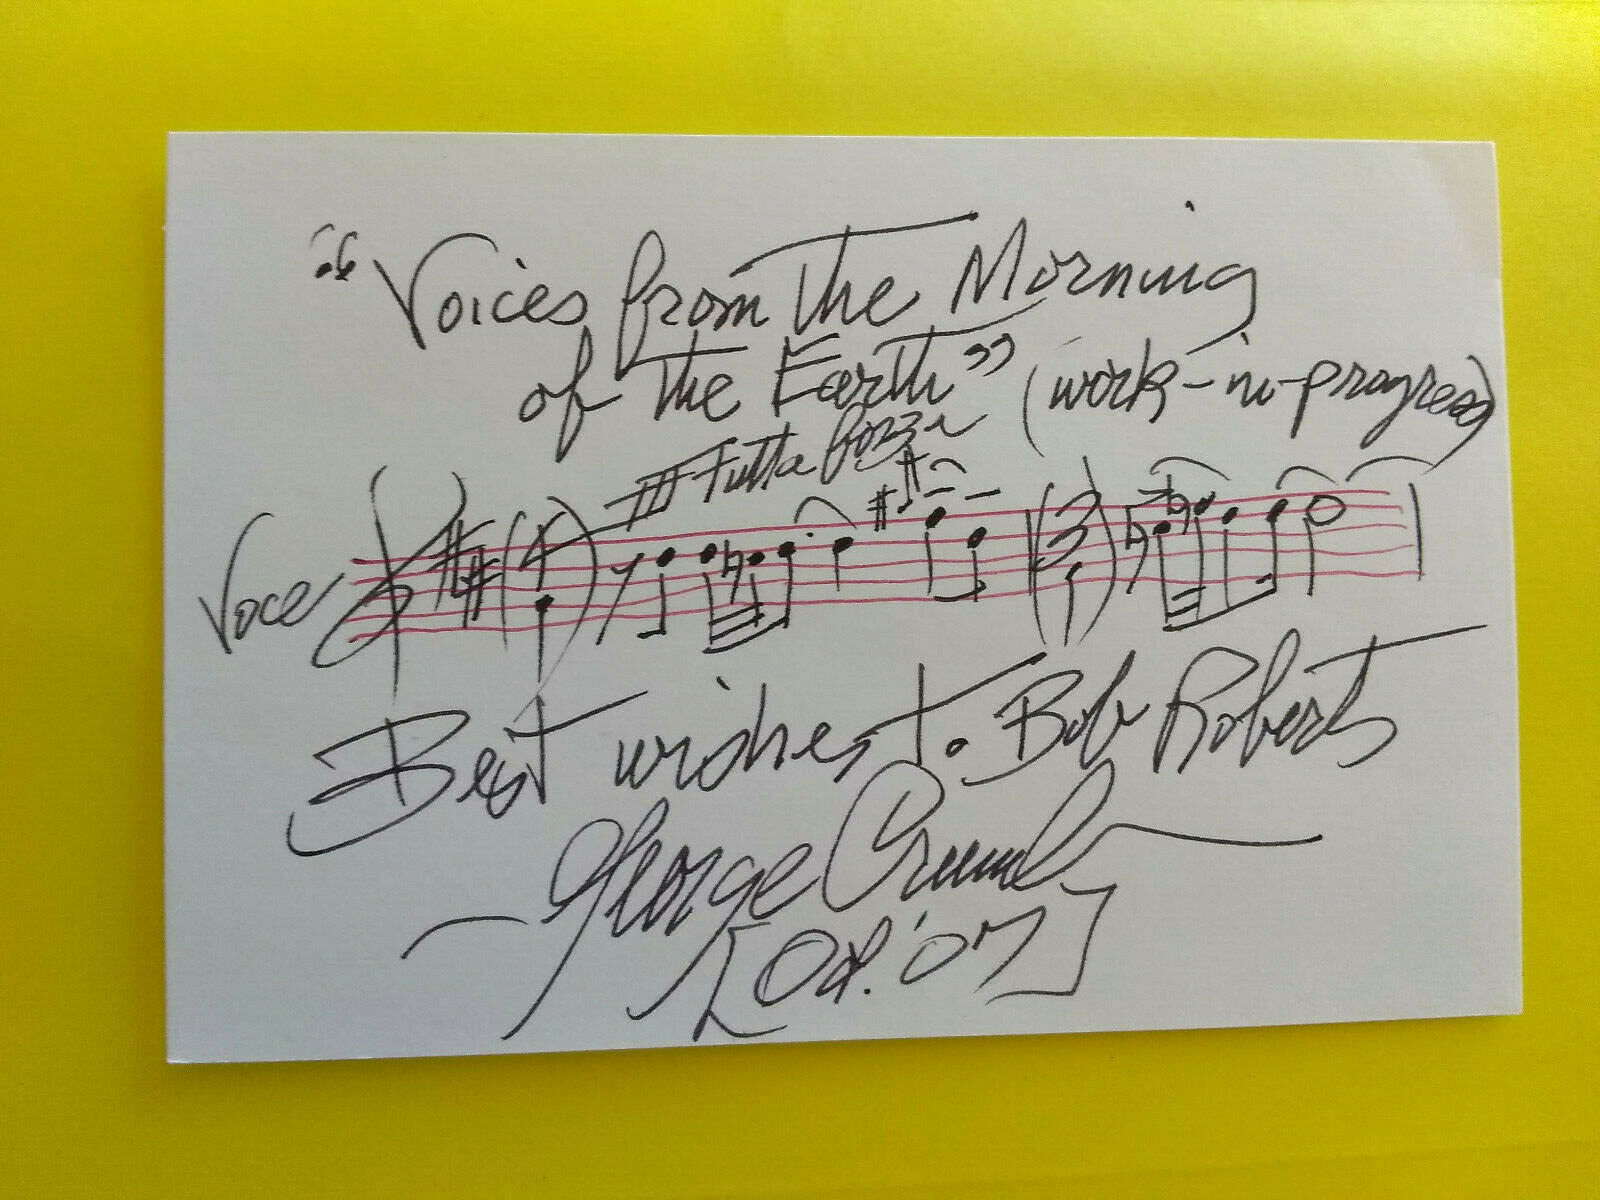 "Voices from The Morning
of The Earth" (work-in-progress)
fff Tutta forza
Voce
Best wishes to Bob Roberts
George Crumb
[Od. '07]